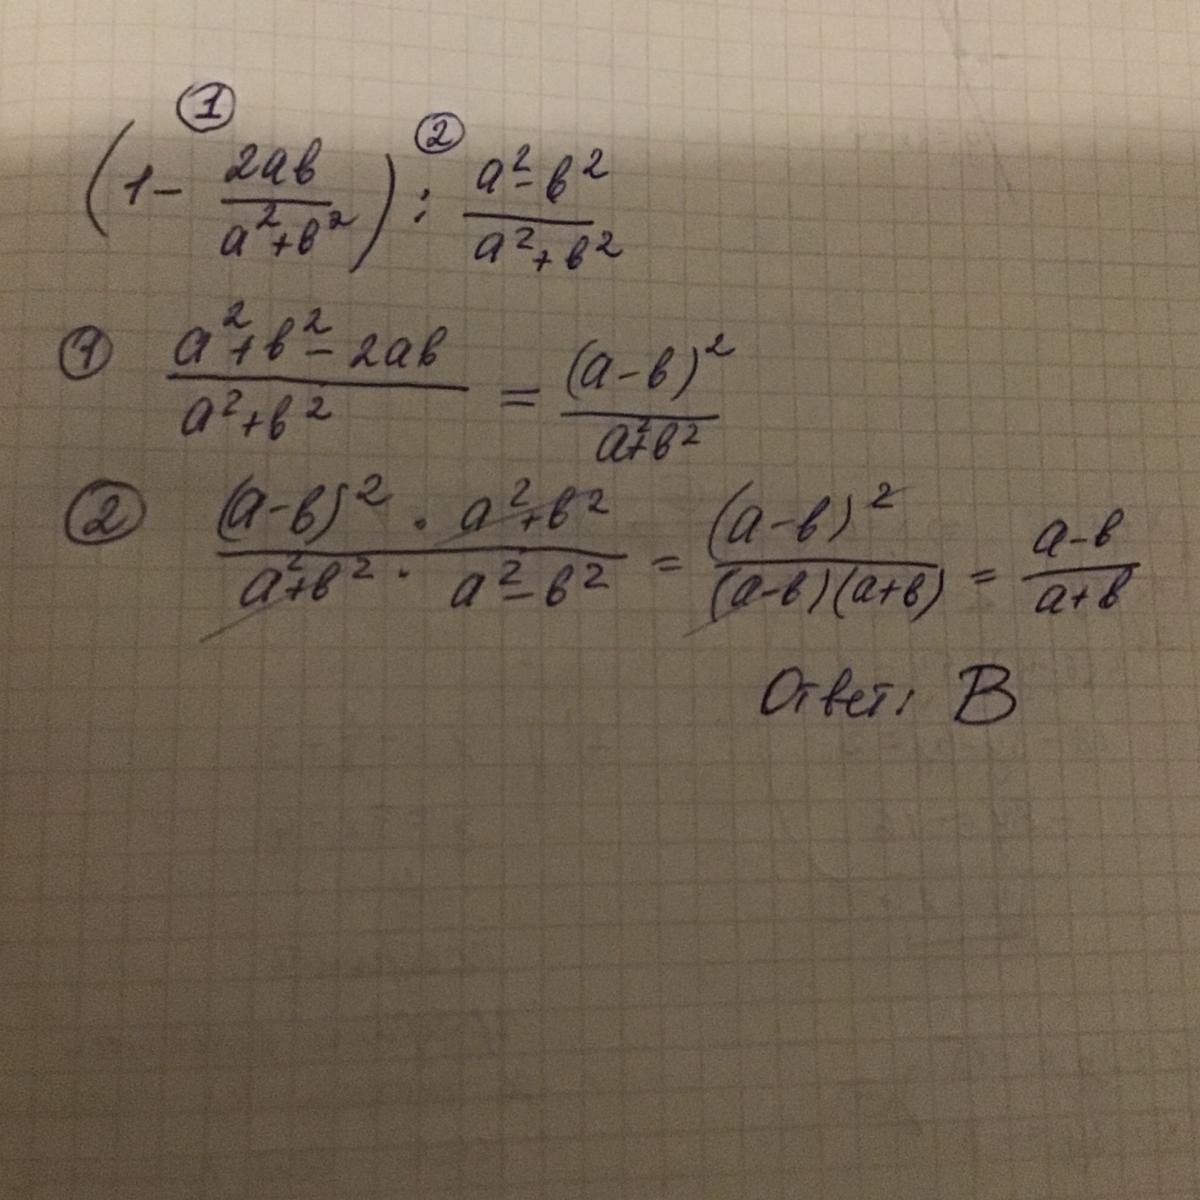 ① ②
(1 - 2ab/(a²+b²)) : (a²-b²)/(a²+b²)
① (a²+b²-2ab)/(a²+b²) = (a-b)²/(a²+b²)
② ((a-b)² · a²+b²)/(a²+b² · a²-b²) = (a-b)²/((a-b)(a+b)) = (a-b)/(a+b)
Ответ: В